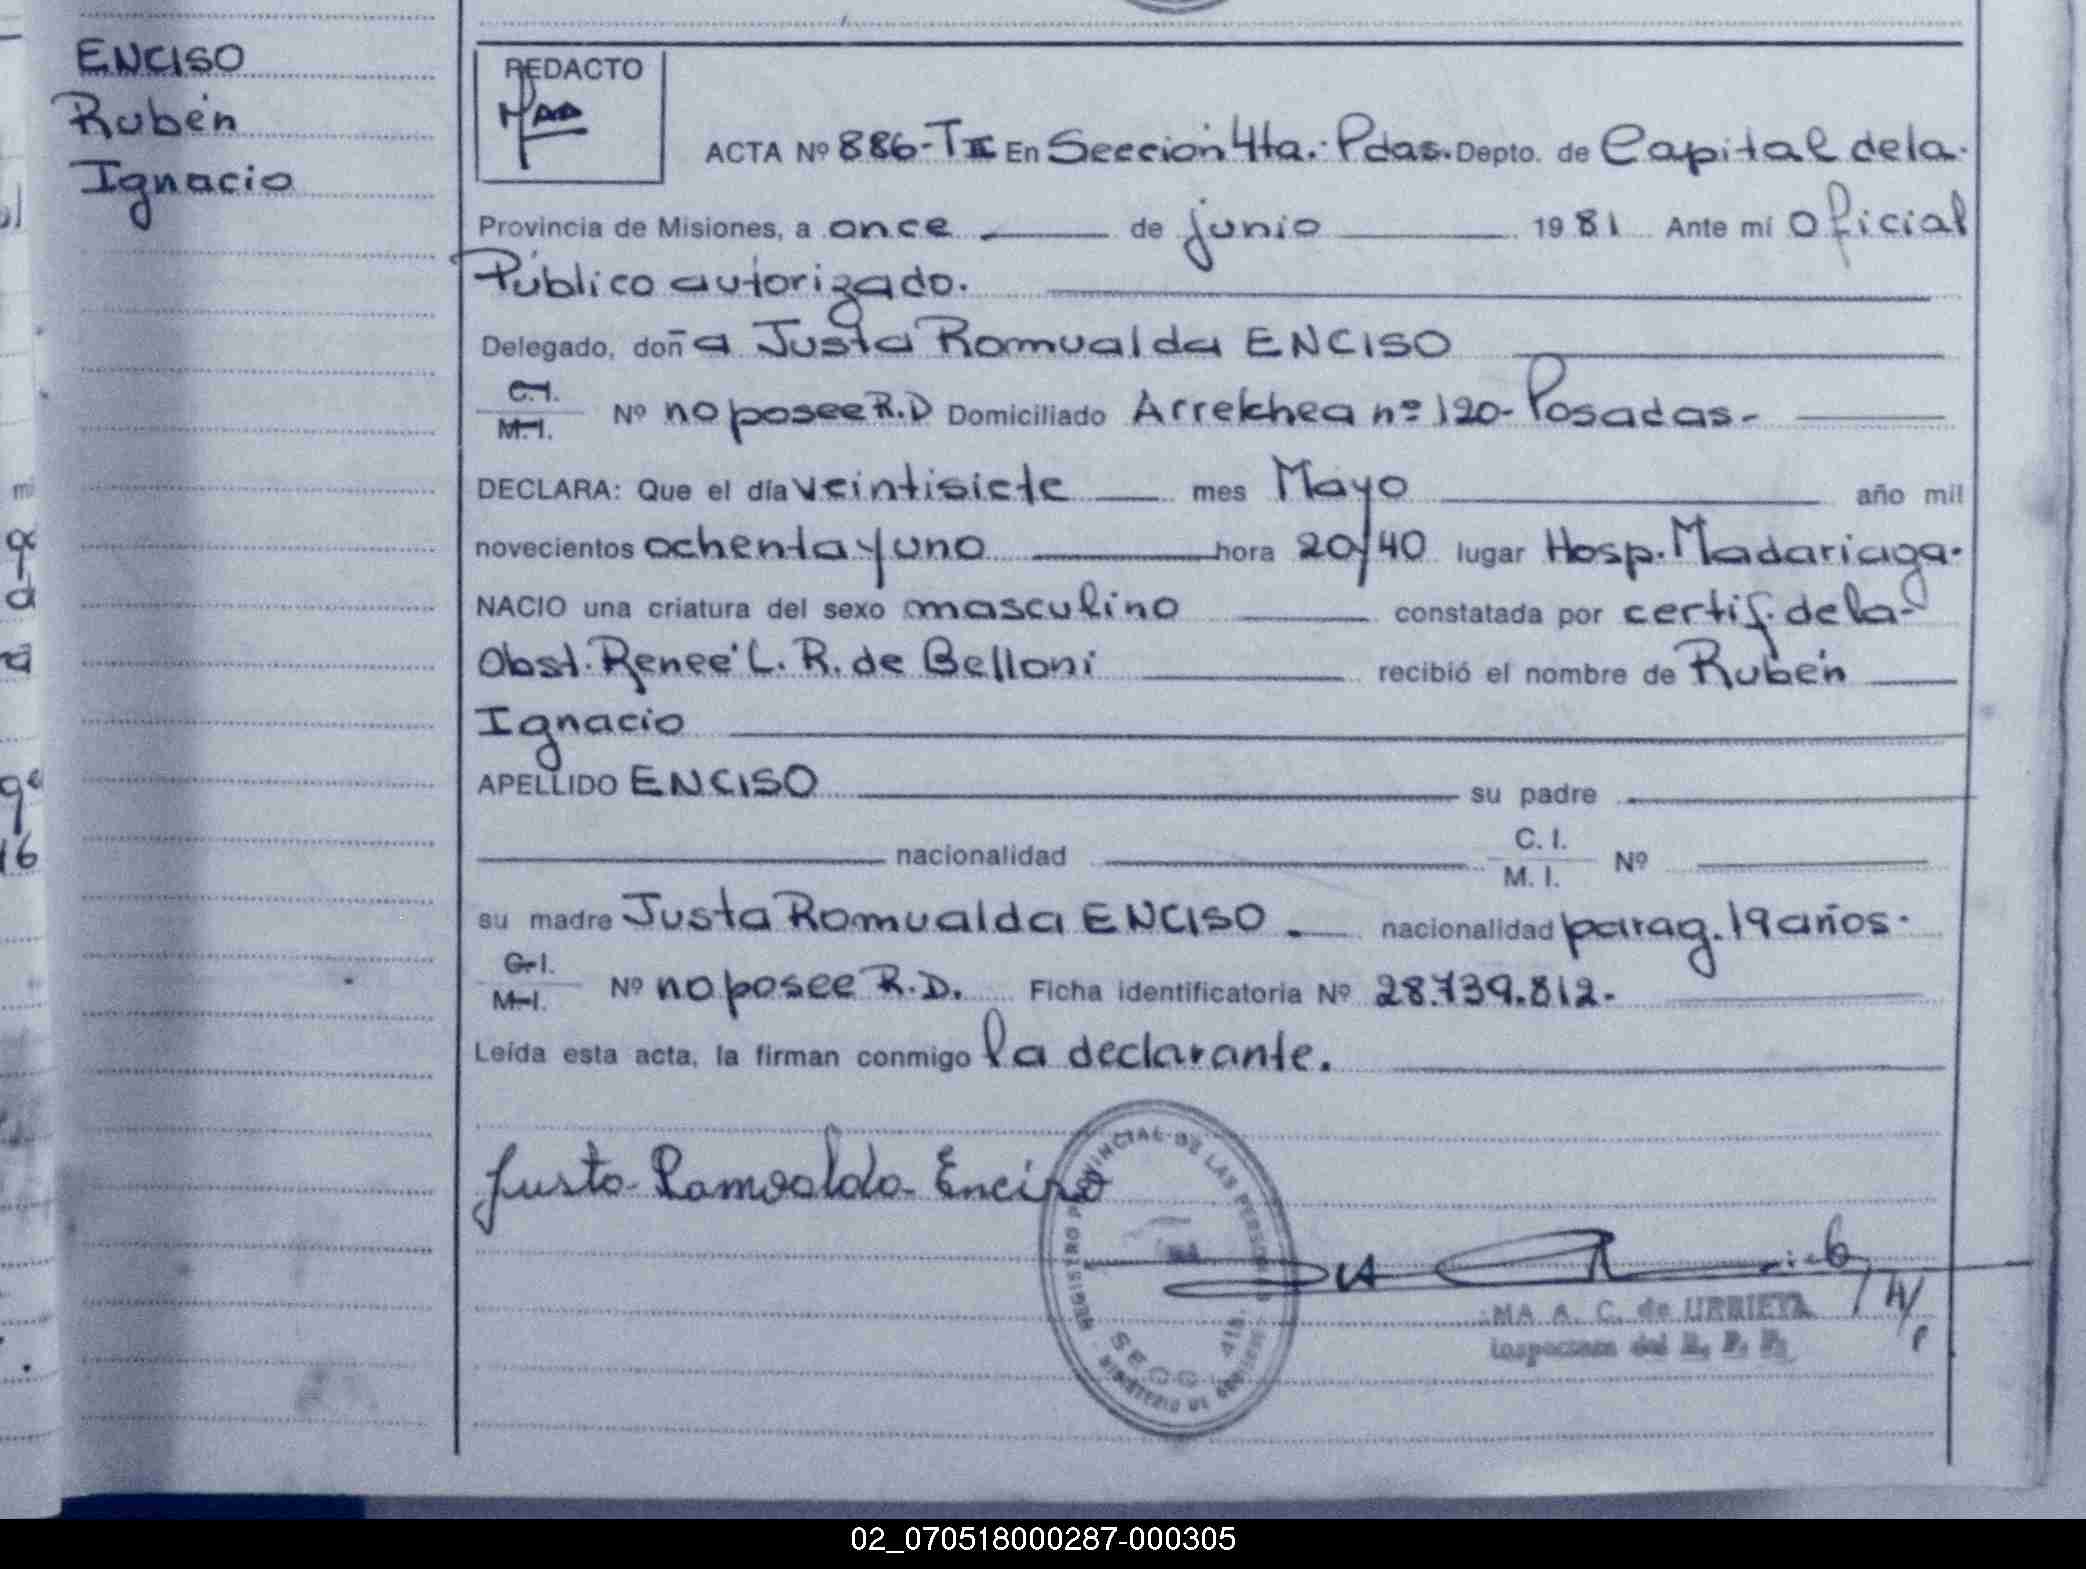 ENCISO
Rubén
Ignacio
REDACTO
ACTA Nº 886-TII En Sección 4ta. Pdas. Depto. de Capital de la
Provincia de Misiones, a once de junio 1981 Ante mí Oficial
Público autorizado.
Delegado, doña Justa Romualda ENCISO
C.I.
M.I. Nº no posee R.D Domiciliado Arrelchea nº 120- Posadas-
DECLARA: Que el día veintisiete mes Mayo año mil
novecientos ochenta y uno hora 20y40 lugar Hosp. Madariaga.
NACIO una criatura del sexo masculino constatada por certif. de la
Obst. Reneé L. R. de Belloni recibió el nombre de Rubén
Ignacio
APELLIDO ENCISO su padre
nacionalidad C. I.
M. I. Nº
su madre Justa Romualda ENCISO. nacionalidad parag. 19 años.
C.I.
M.I. Nº no posee R.D. Ficha identificatoria Nº 28.739.812-
Leída esta acta, la firman conmigo la declarante.
Justa Romualda Enciso
REGISTRO PROVINCIAL DE LAS PERSONAS
SECC 4ta.
MINISTERIO DE GOBIERNO
MA A. C. de URRIETA
Inspectora del R. P. P.
02_070518000287-000305